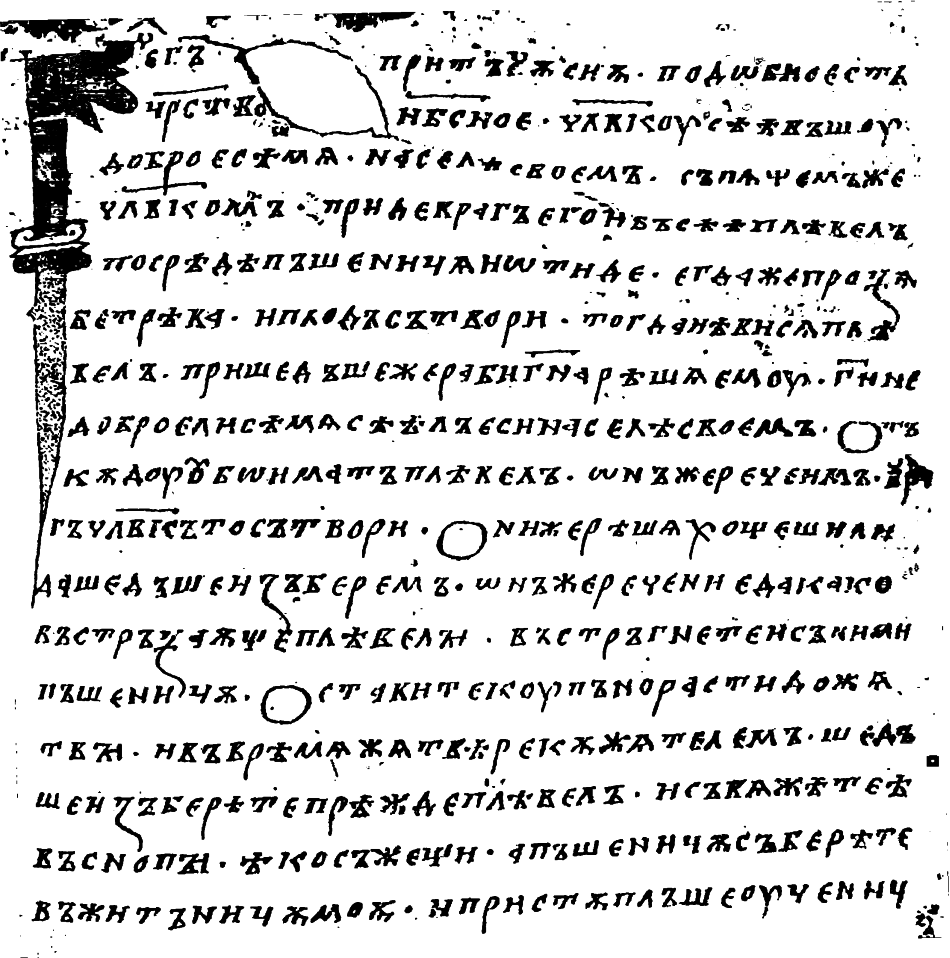 егъ притъчѫ сиѫ · подѡбноестъ
чрство нбсное · члвкоу сѣѣвъшоу
доброесѣмѧ · населѣ своемъ · съпѧщемъже
члвкомъ · придеврагъегоинвъсѣѣплѣвелъ
посрѣдѣпъшеницѧиѡтиде · егдажепроцѧ
бетрѣва · иплодъсътвори · тогдаиѣвисѧплѣ
велъ · пришедъшежерабигнарѣшѧемоу · гине
доброелисѣмѧсѣѣлъесинаселѣсвоемъ · отъ
кѫдоуꙋбѡиматъплѣвелъ · ѡнъжереченимъ · вра
гъчлвкътосътвори · ониже рѣшѧхощешили
дашедъшеизъберемъ · ѡнъжеречени едакако
въстръзаѭщеплѣвелы · въстръгнетеисъними
пъшеницѫ · оставитекоупънорастидожѧ
твы · ивъврѣмѧжѧтвѣрекѫжѧтелемъ · шедъ
шеизъберѣтепрѣждеплѣвелъ · исъвѧжѣтеѣ
въснопы · ѣкосъжещи · апъшеницѫсъберѣте
въжитъницѫмоѭ ·ипристѫплъшеоучениц